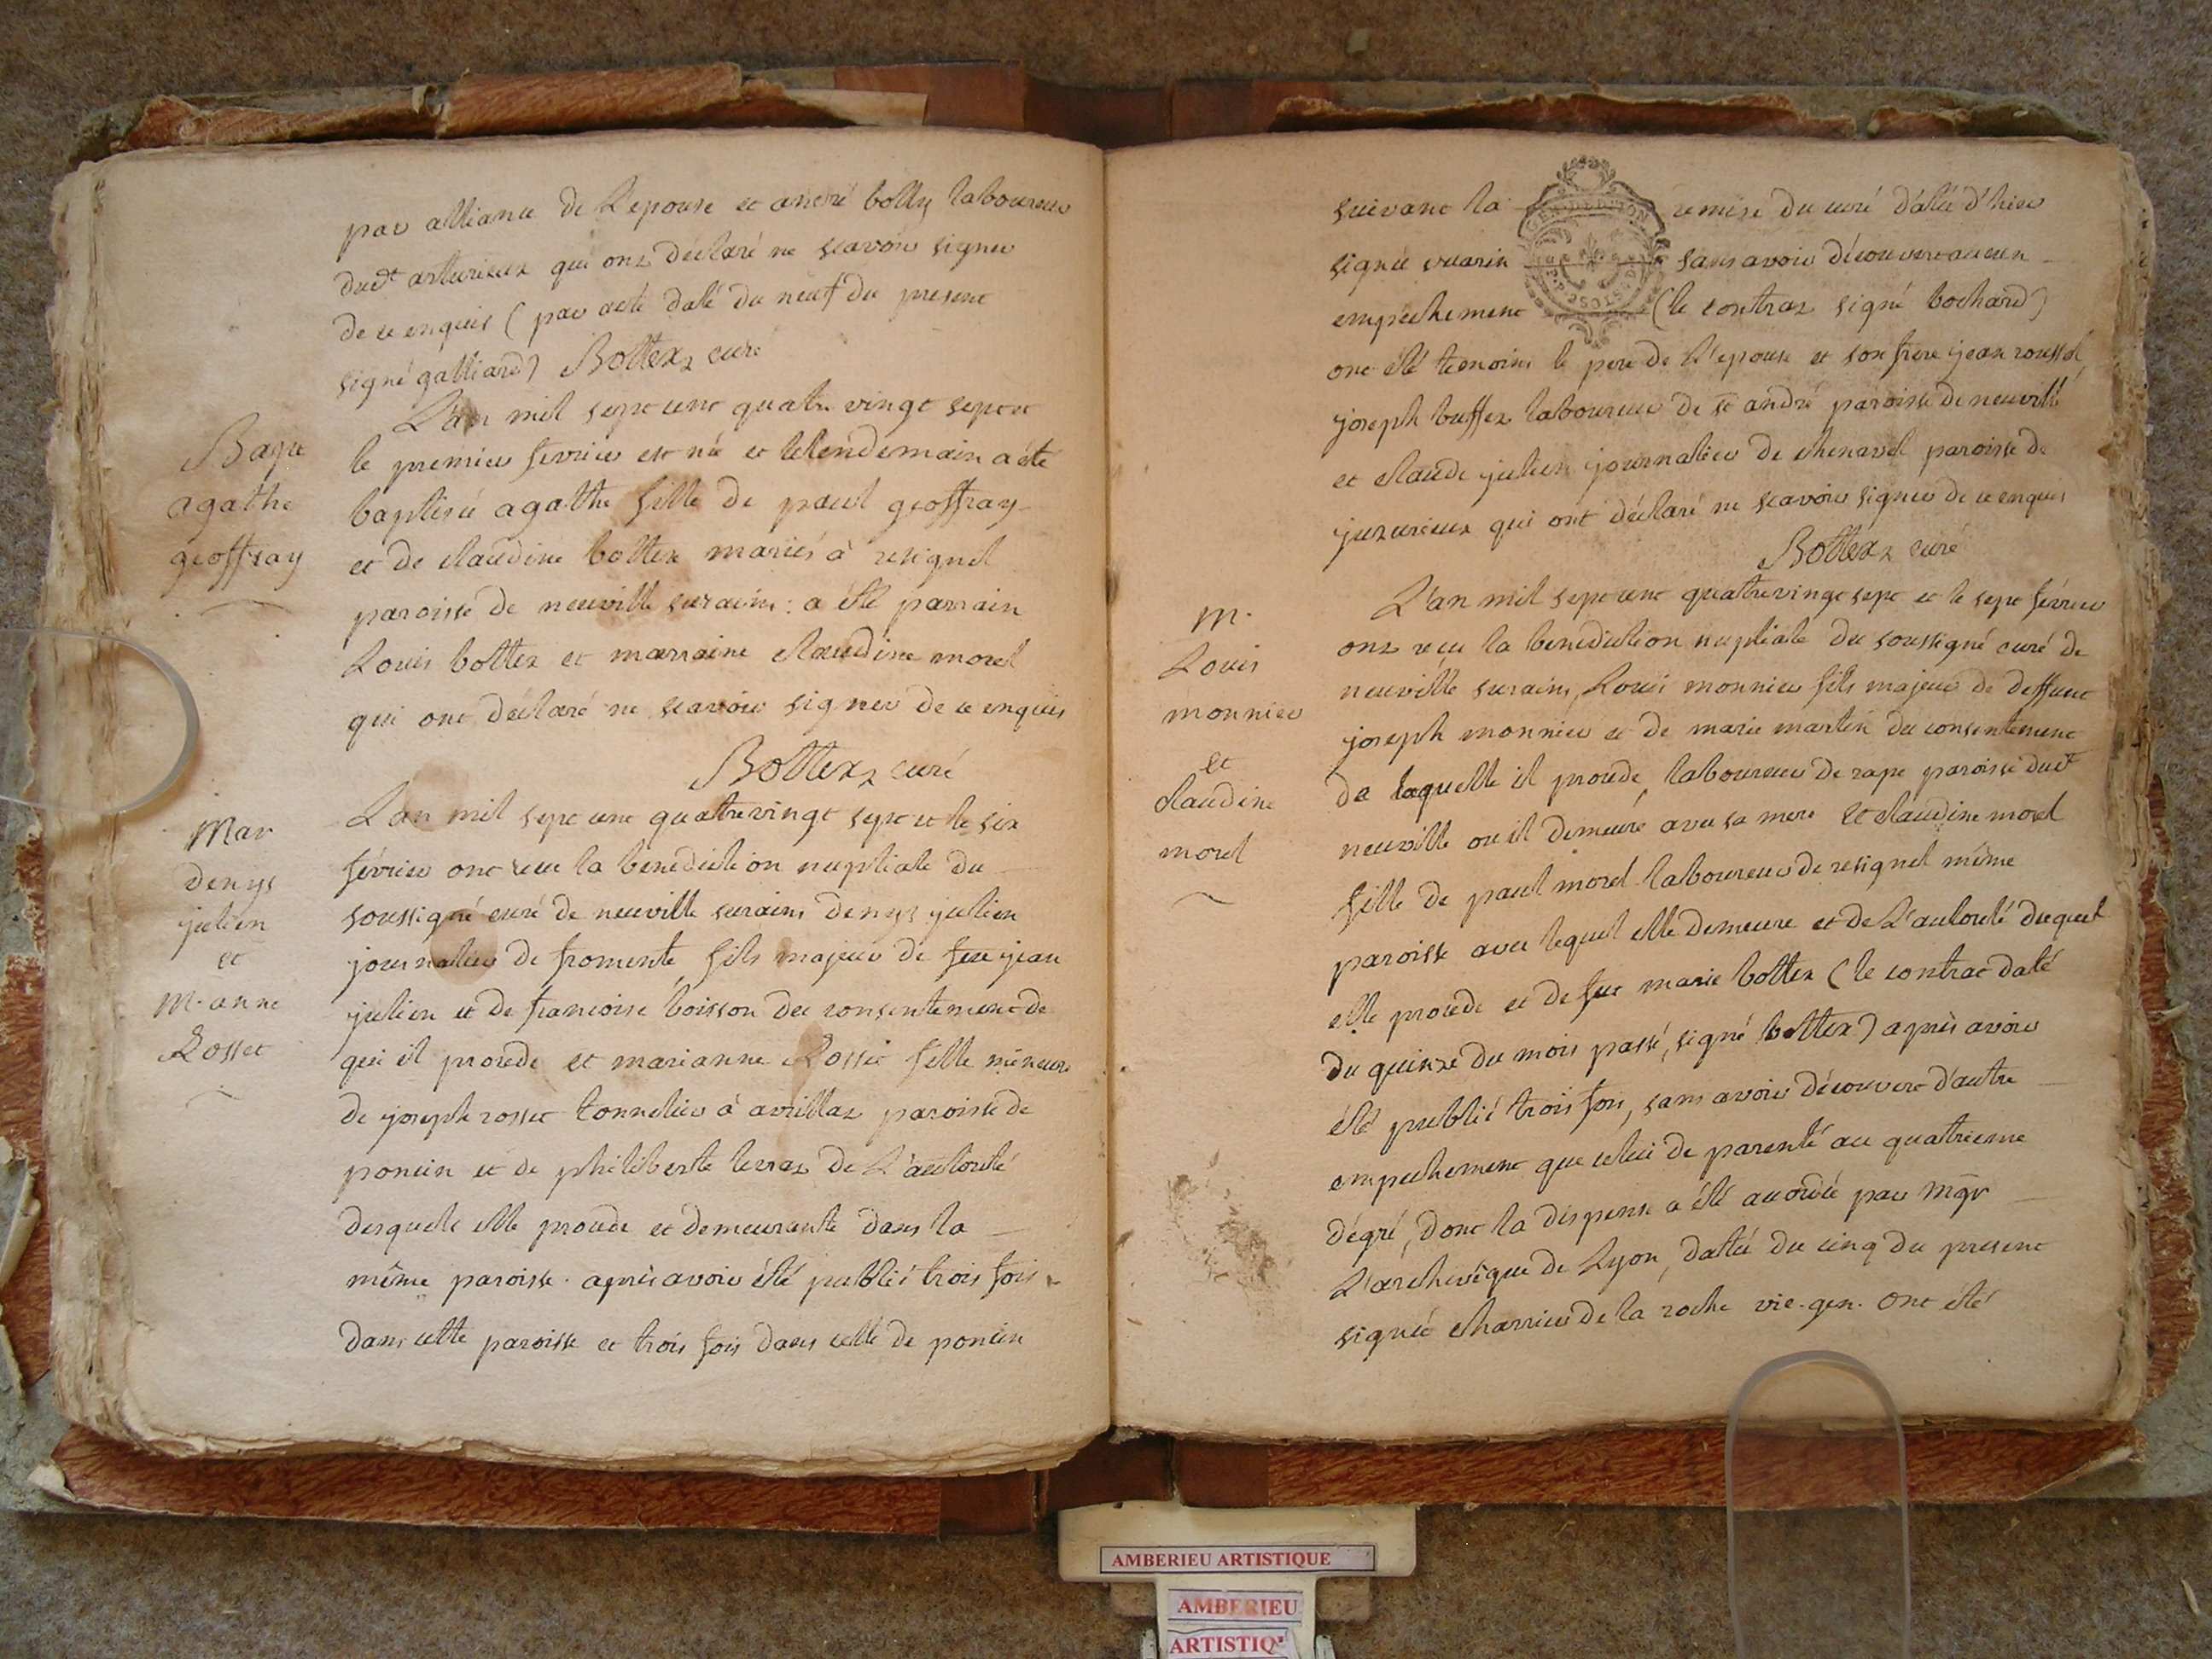 par alliance de L'epouse et andré bolly laboureur
dudt arturieux qui ont déclaré ne scavoir signer
de ce enquis (par acte daté du neuf du present
signé galliard) Bottex, curé
Bapt
agathe
geoffray
L'an mil sept cent quatre vingt sept et
le premier fevrier est née et le lendemain a été
baptisée agathe fille de paul geoffray
et de claudine bottex mariés à resignel
paroisse de neuville surains : a été parrain
Louis bottex et marraine claudine morel
qui ont déclaré ne scavoir signer de ce enquis
Bottex, curé
Mar
denys
julien
et
m. anne
Rosset
L'an mil sept cent quatrevingt sept et le six
février ont reçu la benediction nuptiale du
soussigné curé de neuville surains denys julien
journalier de fromente, fils majeur de feu jean
julien et de francoise boisson du consentement de
qui il procede et marianne Rosset fille mineure
de joseph rosset tonnelier à avrillaz paroisse de
poncin et de philiberte terraz de L'autorité
desquels elle procede et demeurante dans la
même paroisse. après avoir été publié trois fois
dans cette paroisse et trois fois dans celle de poncin
suivant la remise du curé datée d'hier
signée vuarin sans avoir découvert aucun
empechement (le contrat signé bochard)
ont été temoins le pere de L'epouse et son frere jean rosset,
joseph buffet laboureur de st andré paroisse de neuville
et claude julien journalier de chenavel paroisse de
juzurieux qui ont déclaré ne scavoir signer de ce enquis
Bottex, curé
m.
Louis
monnier
et
claudine
morel
L'an mil sept cent quatrevingt sept et le sept février
ont reçu la benediction nuptiale du soussigné curé de
neuville surains, Louis monnier fils majeur de deffunt
joseph monnier et de marie martin du consentement
de laquelle il procede, laboureur de rape paroisse dudt
neuville ou il demeure avec sa mere et claudine morel
fille de paul morel laboureur de resignel même
paroisse avec lequel elle demeure et de L'autorité duquel
elle procede et de feue marie bottex (le contrat daté
du quinze du mois passé, signé bottex) après avoir
été publié trois fois, sans avoir découvert d'autre
empechement que celui de parenté au quatrieme
dégré, dont la dispense a été accordée par mgr
L'archevêque de Lyon, datée du cinq du present
signée charrier de la roche vic. gen. ont été
AMBERIEU ARTISTIQUE
AMBERIEU
ARTISTIQ